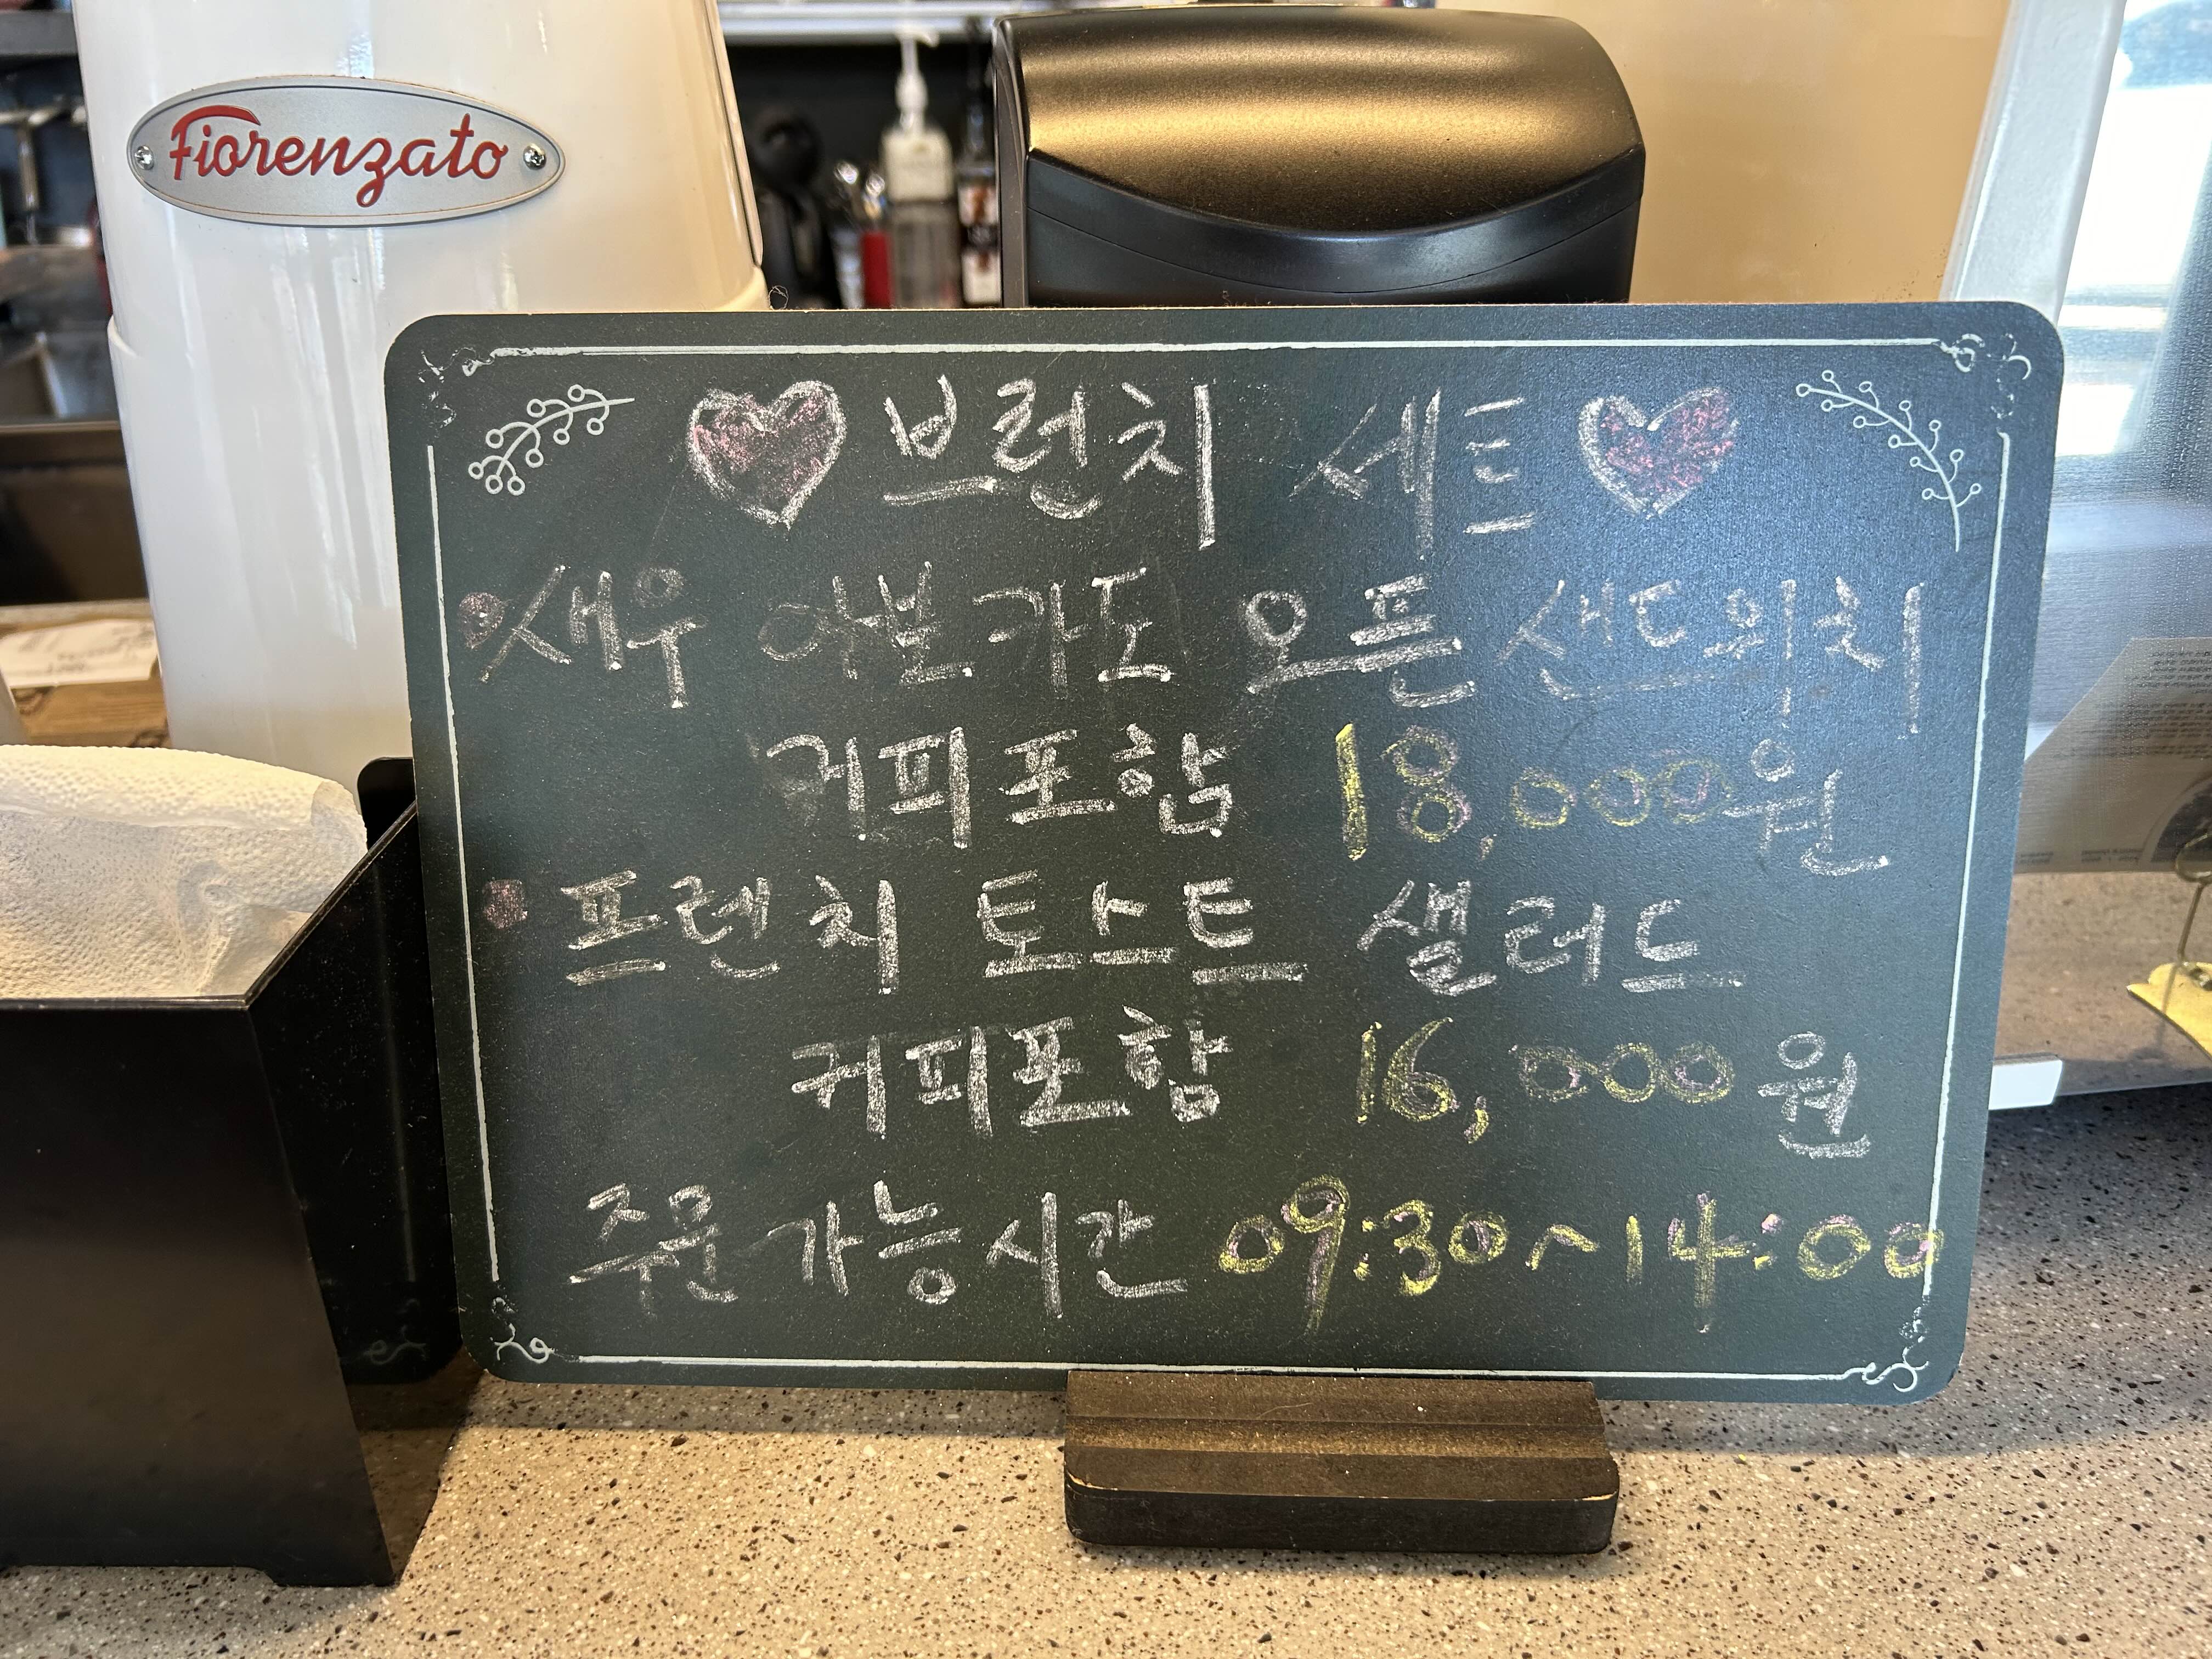 Fiorenzato
브런치 세트
새우 아보카도 오픈 샌드위치
커피포함 18,000원
프렌치 토스트 샐러드
커피포함 16,000원
주문가능시간 09:30~14:00